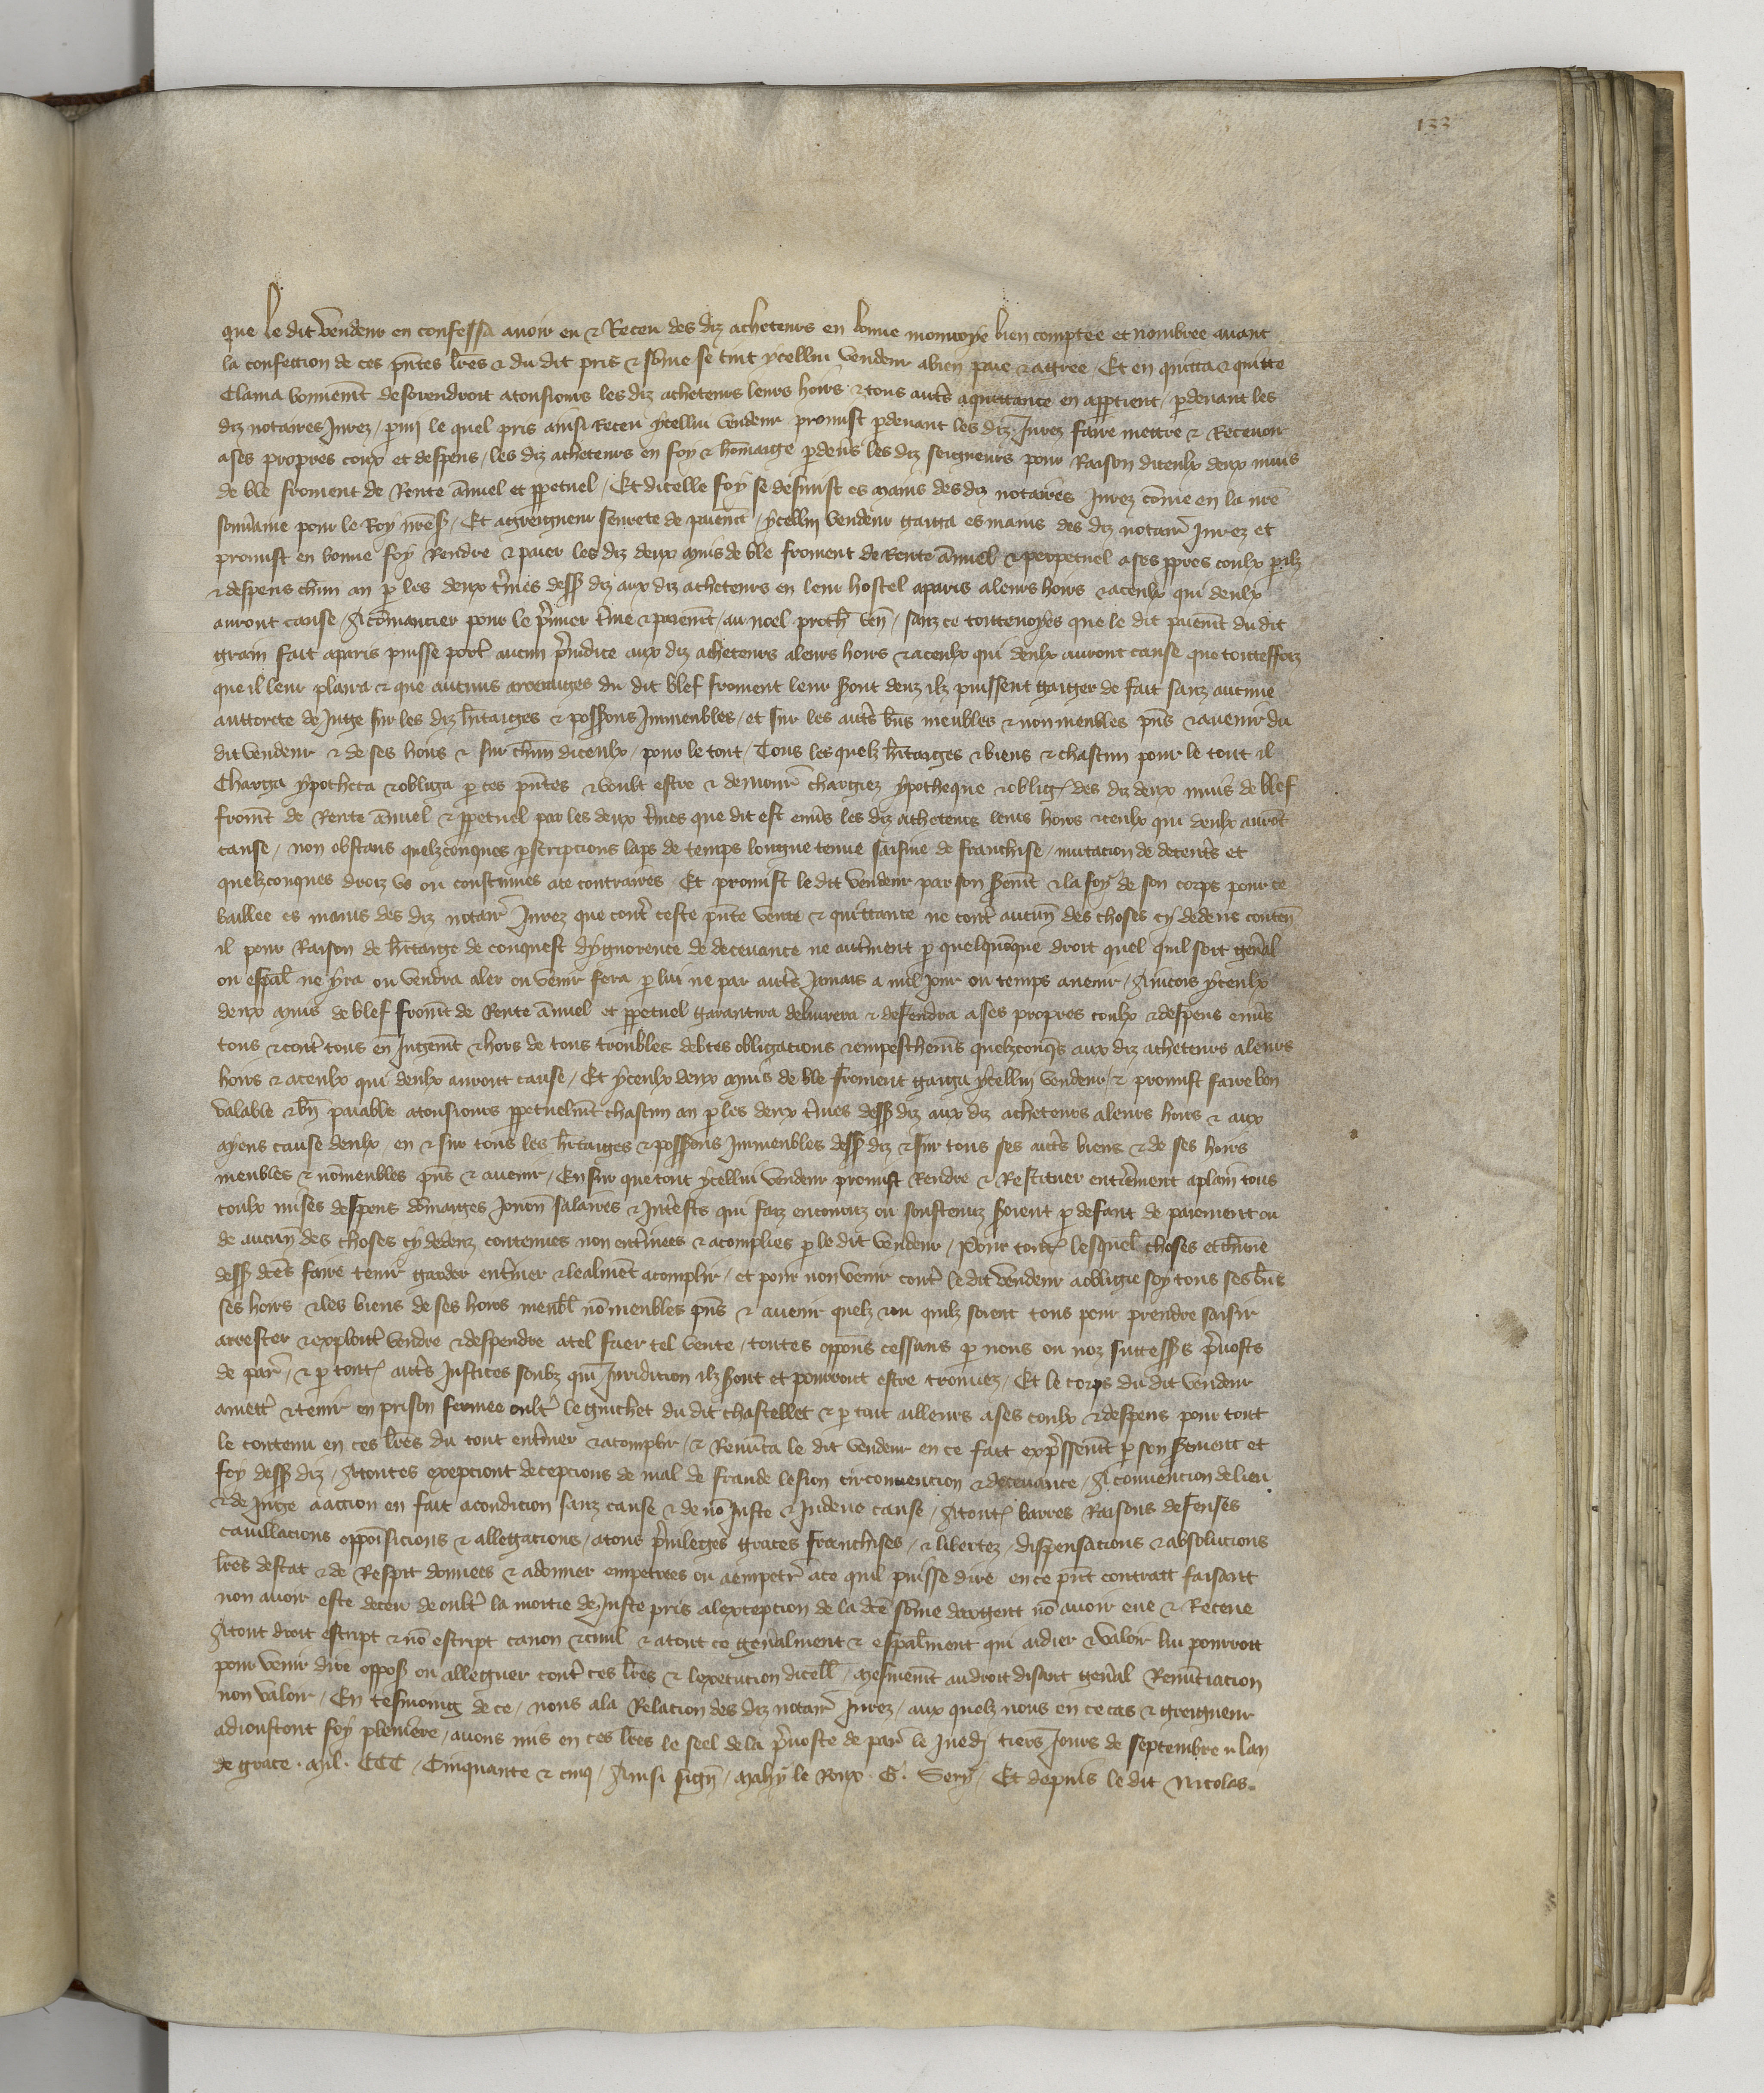 133
que le dit vendeur en confessa avoir eu & Receu des diz acheteurs en bonne monnoye bien comptee et nombree avant
la confection de ces pñtes lr̃es & du dit pris & sõme se tint ycellui vendeur a bien paie & agree / Et en quitta & quitte
Clama bonnem̃t desorendroit a tousiours les diz acheteurs leurs hoirs & tous autr̃s a quittance en app̱tient / p̱devant les
diz notaires Jurez / p̱mi le quel pris ainsi Receu ycellui vendeur promist p̱devant les diz Jurez faire mettre & Recevoir
a ses propres coux et despens / les diz acheteurs en foy & hõmaige p̱devs̃ les diz seigneurs pour Raison diceulx deux muis
de ble froment de Rente ãnuel et p̱petuel / Et dicelle foy se desmist es mains des diz notaires Jurez cõme en la nr̃e
souv̾aine pour le Roy nr̃e s̾ / Et a greigneur seurete de paiem̃t / ycellui vendeur gaiga es mains des diz notair̾ Jurez et
promist en bonne foy Rendre & paier les diz deux muis de ble froment de Rente ãnuel & perpetuel a ses p̱pres coulx p̱ilz
& despens chũn an p̱ les deux t̾mes dess̾ diz aux diz acheteurs en leur hostel a paris a leurs hoirs & a ceulx qui deulx
auront cause / A cõmancier pour le p̾mier t̾me & paiem̃t / au noel proch̃ veñ / sanz ce toutevoyes que le dit paiem̃t du dit
grain fait a paris puisse port̾ aucun p̾iudice aux diz acheteurs a leurs hoirs & a ceulx qui deulx auront cause que toutesfoiz
que il leur plaira & que aucuns arrerages du dit blef froment leur s̾ont deuz ilz puissent gaiger de fait sanz aucune
auttorite de Juge sur les diz h̾itaiges & poss̾ons Immeubles / et sur les autr̃s bñs meubles & non meubles pñs & avenir du
dit vendeur & de ses hoirs & sur chũn diceulx / pour le tout / Tous les quelz h̾itaiges & biens & chascun pour le tout il
Charga ypotheca & obliga p̱ ces pñtes & voult estre & demour̾ chargiez ypotheque & oblig̾ des diz deux muis de blef
from̃t de Rente ãnuel & p̱petuel par les deux t̾mes que dit est env̾s les diz acheteurs leurs hoirs & ceulx qui deulx aurõt
cause / non obstans quelzconques p̱scripcions laps de temps longue tenue saisine de franchise / mutacion de detent̾s et
quelzconques droiz us ou coustumes a ce contraires / Et promist le dit vendeur par son s̾em̃t & la foy de son corps pour ce
baillee es mains des diz notair̾ Jurez que cont̾ ceste pñte vente & quittance ne cont̾ aucuñ des choses cy dedens conteñ
il pour Raison de h̾itaige de conquest dygnorence de decevance ne autrement p̱ quelquõque droit quel quil soit geñal
ou esp̃al ne yra ou vendra aler ou venir fera p̱ lui ne par autr̃s Jamais a nul Jour ou temps avenir / Aincois yceulx
deux muis de blef from̃t de Rente ãnuel et p̱petuel garantira delivrera & defendra a ses propres coulx & despens env̾s
tous & cont̾ tous en Jugem̃t & hors de tous troubles debtes obligacions & empeschem̃s quelzconq̃s aux diz acheteurs a leurs
hoirs & a ceulx qui deulx auront cause / Et yceulx deux muis de ble froment gaiga ycellui vendeur / & promist faire bon
valable & bñ paiable a tousiours p̱petuelm̃t chascun an p̱ les deux t̾mes dess̾ diz aux diz acheteurs a leurs hoirs & aux
ayens cause deulx / en & sur tous les h̾itaiges & poss̾ons Immeubles dess̾ diz & sur tous ses autr̃s biens & de ses hoirs
meubles & nõmeubles pñs & avenir / En sur que tout ycellui vendeur promist Rendre & Restituer ent̾ement a plain tous
coulx mises despens dõmaiges Jourñ salaires & Int̾ests qui faiz encouruz ou soustenuz s̾oient p̱ defaut de paiement ou
de aucuñ des choses cy dedenz contenues non ent̾inees & acomplies p̱ le dit vendeur / Pour tout̾ lesquel̃ choses et chũne
dess̾ dc̃es faire tenir garder ent̾iner & lealm̃t acomplir / et pour non venir cont̾ le dit vendeur a obligie soy tous ses bñs
ses hoirs & les biens de ses hoirs meubl̃ nõ meubles pñs & avenir quelz & ou quilz soient tous pour prendre saisir
arrester & exploict̾ vendre & despendre a tel fuer tel vente / toutes oppoñs cessans p̱ nous ou noz success̾s p̾vosts
de par̾ / & p̱ tout̾ autr̃s Justices soubz qui Juridicion ilz s̾ont et pourront estre trouvez / Et le corps du dit vendeur
a mett̾ & tenir en prison fermee oult̾ le guichet du dit chastellet & p̱ tout ailleurs a ses coulx & despens pour tout
le contenu en ces lr̃es du tout ent̾iner & acomplir / & Renũca le dit vendeur en ce fait exp̾ssem̃t p̱ son s̾ement et
foy dess̾ diz / A toutes excepciont decepcions de mal de fraude lesion circonvencion & decevance / A convencion de lieu
& de Juge a accion en fait a condicion sanz cause & de nõ Juste & Indeue cause / A tout̾ barres Raisons defenses
cavillacions oppõsicions & allegacions / a tous p̾vileges graces franchises / & libertez / dispensacions & absolucions
lr̃es destat & de Respit donnees & a donner empetrees ou a empetr̾ a ce quil puisse dire en ce pñt contract faisant
non avoir este deceu de oult̾ la moitie de Juste pris a lexcepcion de la dc̃e sõme dargent nõ avoir eue & Receue
A tout droit escript & nõ escript canon & civil & a tout ce geñalment & esp̃alment qui aidier & valoir lui pourroit
pour venir dire oppos̾ ou alleguer cont̾ ces lr̃es & lexecucion dicell̃ / Mesmem̃t au droit disant geñal Renũciacion
non valoir / En tesmoing de ce / nous a la Relacion des diz notair̾ Jurez / aux quelz nous en ce cas & greigneur
adioustont foy pleniere / avons mis en ces lr̃es le seel de la p̾voste de par̾ le Juedi tiers Jours de septembre lan
de grace . Mil . CCC / Cinquante & cinq / Ainsi sign̾ / Mahy le Roux . G. Sery / Et depuis le dit Nicolas.